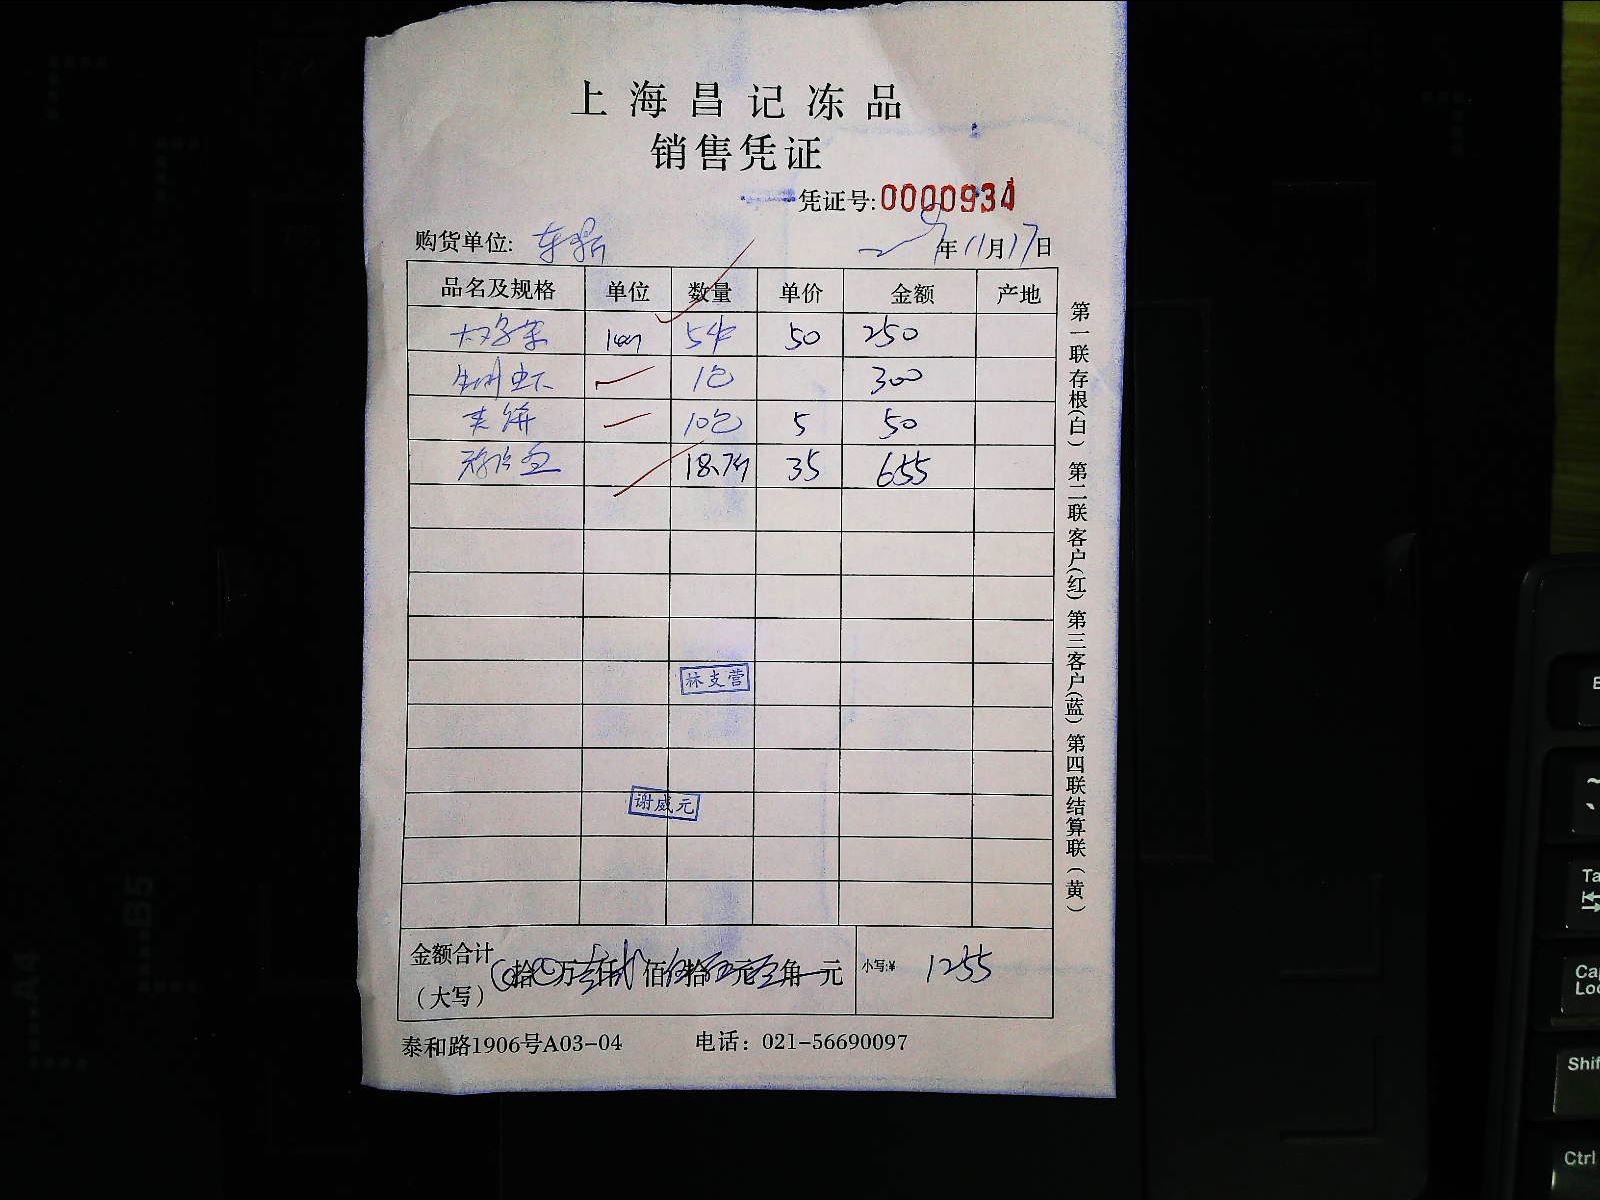 上海昌记冻品
销售凭证
凭证号:0000934
购货单位: 年11月17日
品名及规格 单位 数量 单价 金额 产地
50 250
1包 300
夹饼 10包 5 50
35 655
林支营
谢威元
金额合计 拾 万 仟 佰 拾 元 角 元 小写:¥ 1255
(大写)
泰和路1906号A03-04 电话：021-56690097
第一联存根(白) 第二联客户(红) 第三客户(蓝) 第四联结算联(黄)
B5
A4
Shif
Ctrl